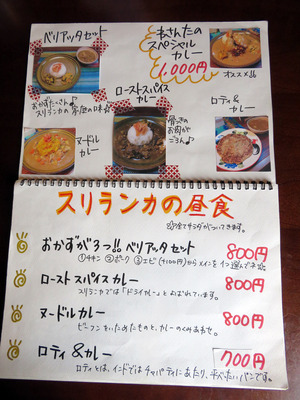 ベリアッタセット
ねさんたの
スペシャル
カレー
1,000円
オススメ!!
おかずたくさん♪
スリランカの家庭の味☆
ローストスパイス
カレー
骨つきの
お肉が
ごろん♪
ロティ&
カレー
ヌードル
カレー
スリランカの昼食
☆全てサラダがついてきます。
おかずが3つ!! ベリアッタセット 800円
①チキン ②ポーク ③エビ(+100円)からメインを1つ選んでネ☆
ローストスパイスカレー 800円
スリランカでは「ドライカレー」とよばれています。
ヌードルカレー 800円
ビーフンをいためたものと、カレーのくみあわせ。
ロティ&カレー 700円
ロティとは、インドではチャパティにあたり、平べったいパンです。